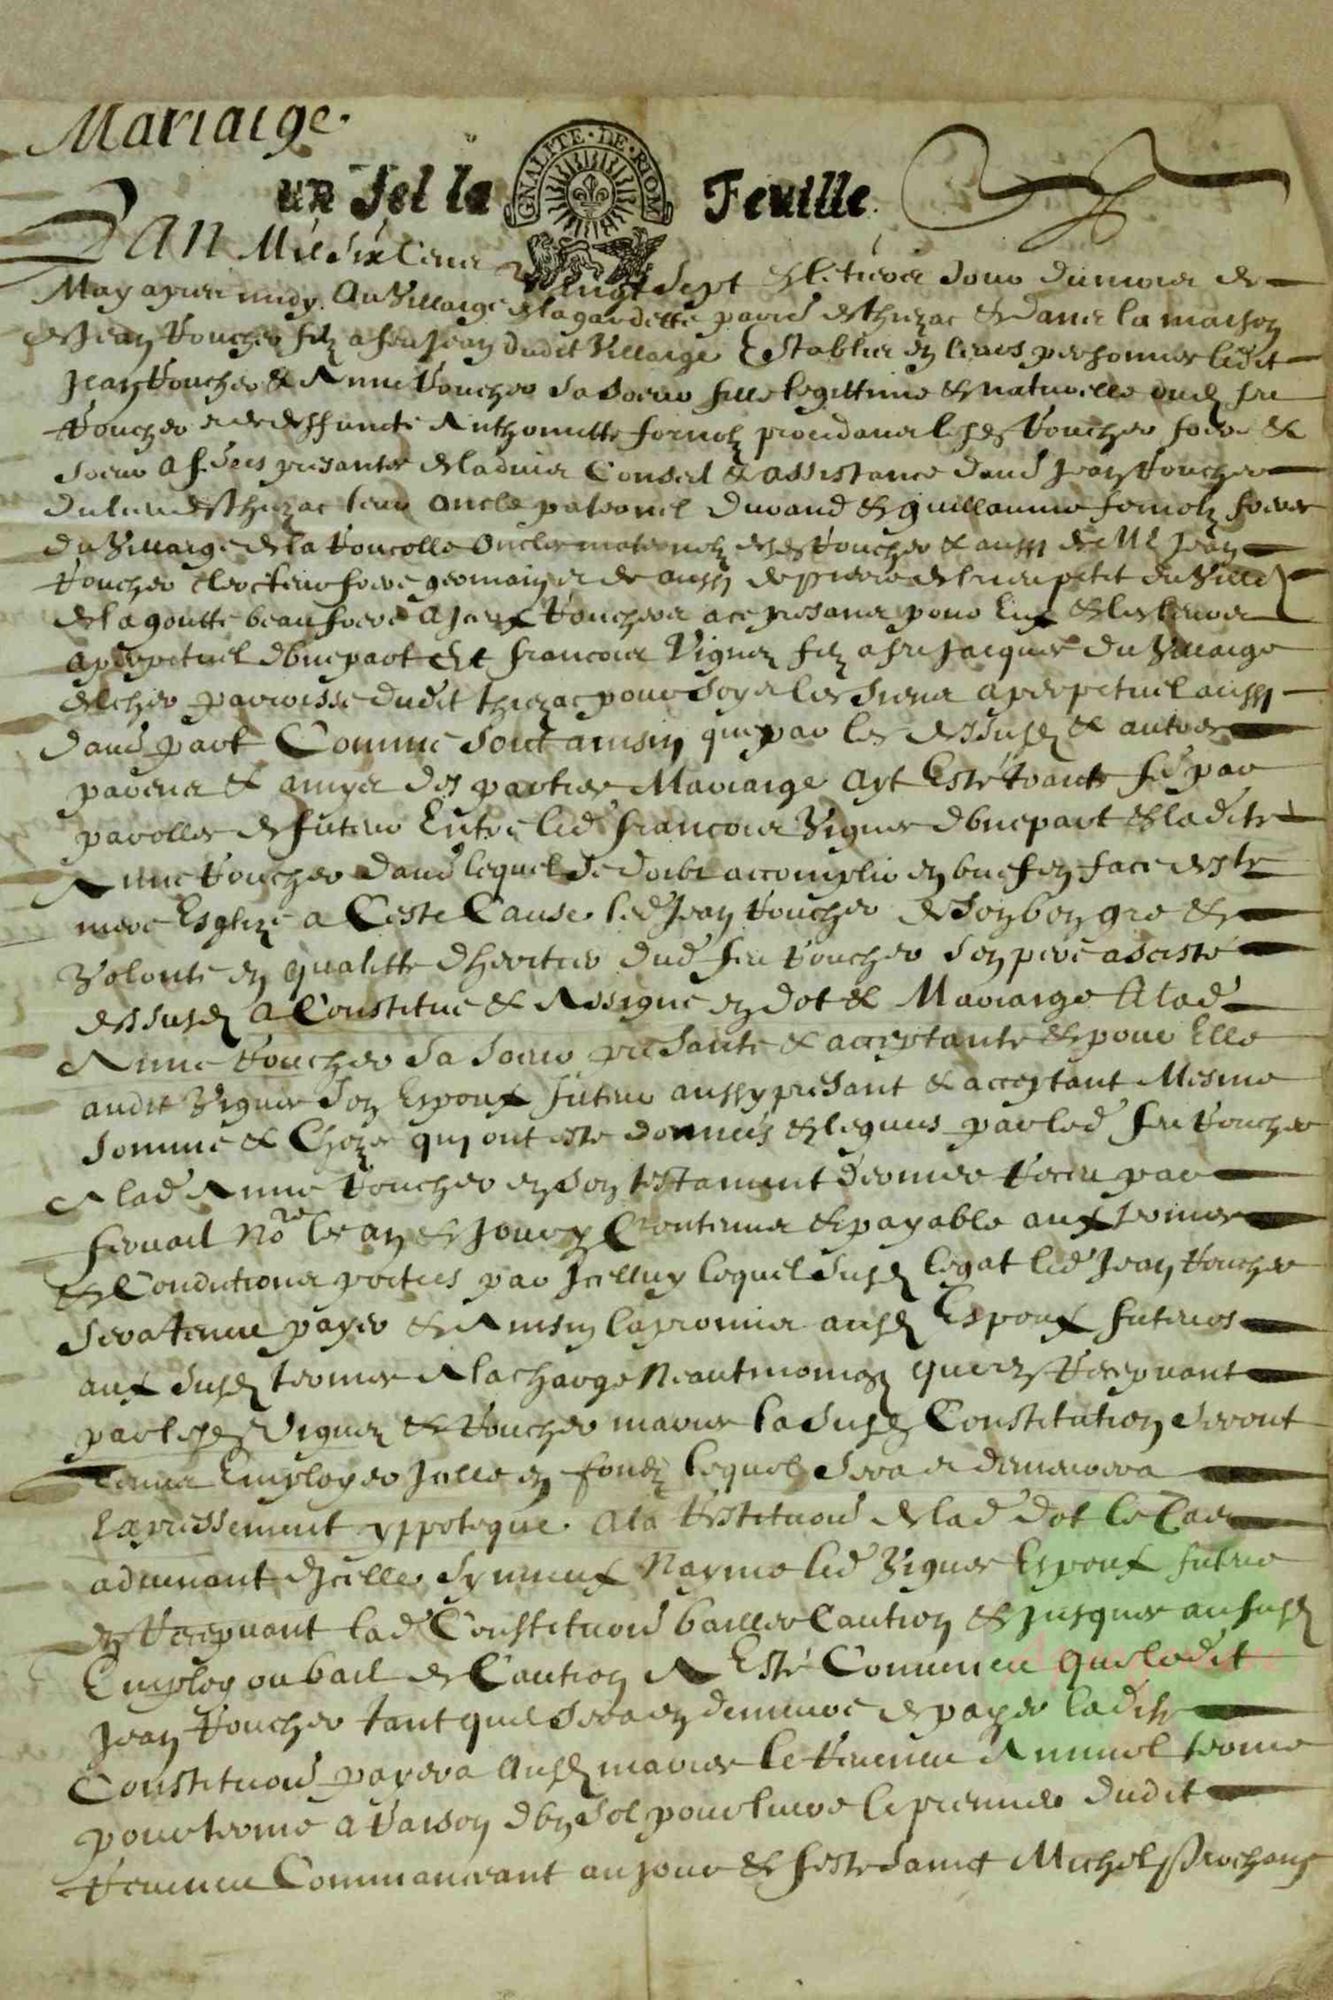 Mariaige.
un sol la GNALITE·DE·RIOM Feuille
L'an Mil Six Cens vingt Sept & le tiers Jour du mois de
May apres midy. Au Villaige de la gardette parr. de thiezac & dans la maison
de Jean Voucher filz a feu Jean dudit Villaige Establis en leurs personnes ledit
Jean Voucher & Anne Voucher Sa Soeur fille legittime & naturelle dud feu
Voucher & de deffuncte Anthonnette procedans lesd Voucher frere &
Soeur a Ses presantes de ladvis Conseil & assistance dud Jean Voucher
du lieu de thiezac leur oncle paternel durand & guillaume freres
du Villaige de la Oncles maternelz desd Voucher & aussi de Me Jean
Voucher frere germain & de aussi de pierre petit du Ville
de la goutte beau frere a Iceux Vouchers a ce presans pour Eux & les leurs
a perpetuel d'une part Et francois Vigues filz a feu Jacques du Villaige
parroisse dudit thiezac pour Soy & les Siens a perpetuel aussi
daud part Comme Soit ainsin que par les dessusd & autres
parens & amys des parties Mariaige ayt Esté traité par
parolles de futeur Entre led francois Vigues d'une part & ladite
Anne Voucher daud lequel Se doibt accomplir en bref en face de Ste
mere Esglize a Ceste Cause led Jean Voucher de Son bon gré &
Volonté en qualitte dheritier dud feu Voucher Son pere asisté
dessusd a Constitué & Assigné en dot & Mariaige A lad
Anne Voucher Sa Soeur presante & acceptante & pour Elle
audit Vigues Son Espoux futeur aussy presant & acceptant Mesme
Somme & Choze qui ont este donnés & legués par led feu Voucher
A lad Anne Voucher en Son testament dernier Receu par
No.re les an & Jour y Contenus & payable aux termes
& Conditions portées par Icelluy lequel Susd legat led Jean Voucher
Sera tenu payer & Ainsin la promis ausd Espoux futeurs
aux Susd termes A la charge Neantmoings quen Recepvant
par lesd Vigues & Voucher maries la Susd Constitution Seront
tenus Employer Icelle en fondz lequel Sera & demeurera
Expressement yppotequé A la Restitution de lad dot le Cas
advenant dIcelle Si mieux Nayme led Vigues Espoux futeur
en Recepvant lad Constitution bailler Caution & Jusques au Susd
Employ ou bail de Caution A Esté Convenu que ledit
Jean Voucher tant quil Sera en demeure de payer ladite
Constitution payera ausd maries le Revenu Annuel terme
pour terme a Raison dun Sol pour livre le premier dudit
Revenu Commancant au jour & feste Sainct Michel prochain